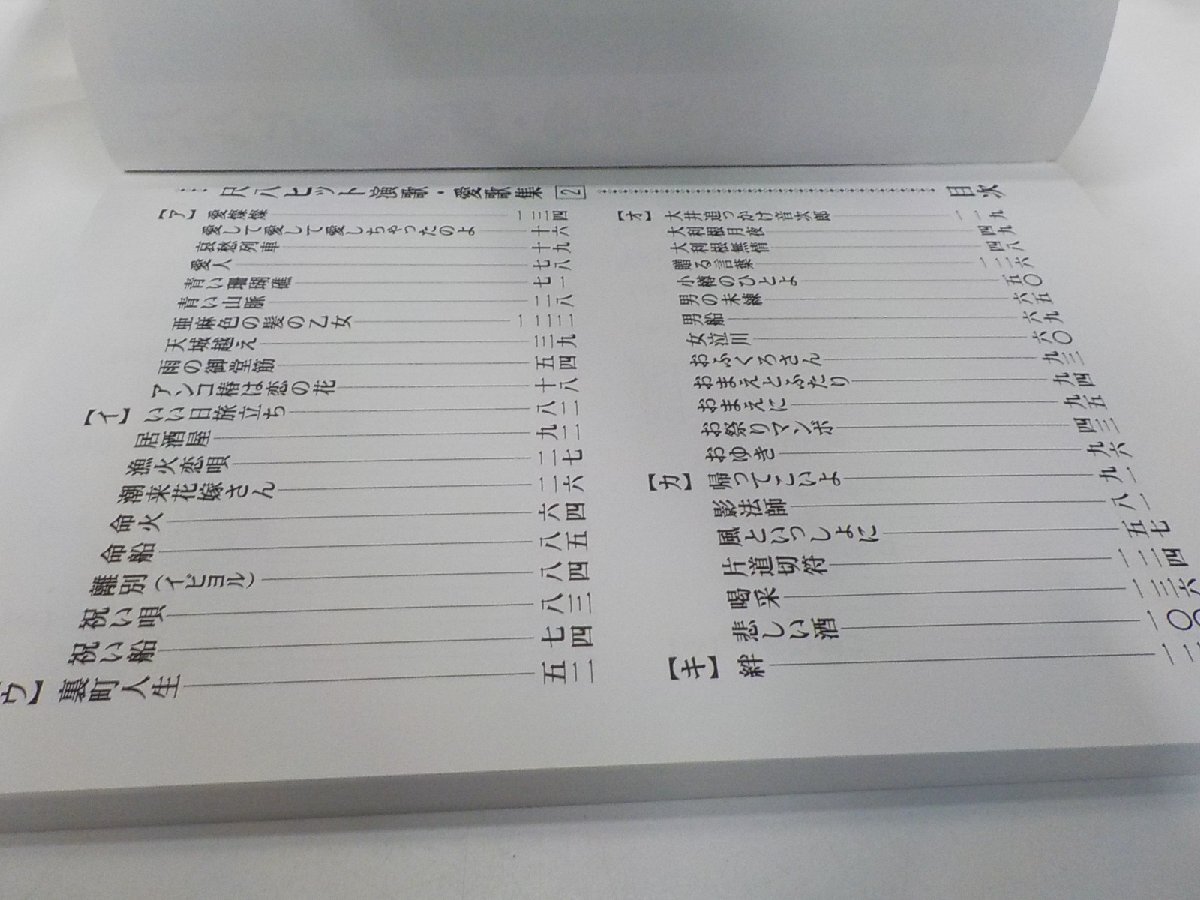 尺八ヒット演歌・愛歌集 2 目次
【ア】 愛燦燦 一三四
愛して愛して愛しちゃったのよ 十六
哀愁列車 十九
愛人 七八
青い珊瑚礁 七一
青い山脈 二八
亜麻色の髪の乙女 一二二
天城越え 三九
雨の御堂筋 五四
アンコ椿は恋の花 十八
【イ】 いい日旅立ち 八二
居酒屋 九二
漁火恋唄 二七
潮来花嫁さん 二六
命火 六四
命船 八五
離別(イビョル) 八四
祝い唄 八三
祝い船 七四
ウ】 裏町人生 五二
【オ】 大井追っかけ音次郎 一一九
大利根月夜 四九
大利根無情 四八
贈る言葉 一二六
小樽のひとよ 五〇
男の未練 六五
男船 六九
女泣川 六〇
おふくろさん 九三
おまえとふたり 九四
おまえに 九五
お祭りマンボ 四三
おゆき 九六
【カ】 帰ってこいよ 九一
影法師 八一
風といっしょに 五七
片道切符 一二四
喝采 一三六
悲しい酒 一〇〇
【キ】 絆